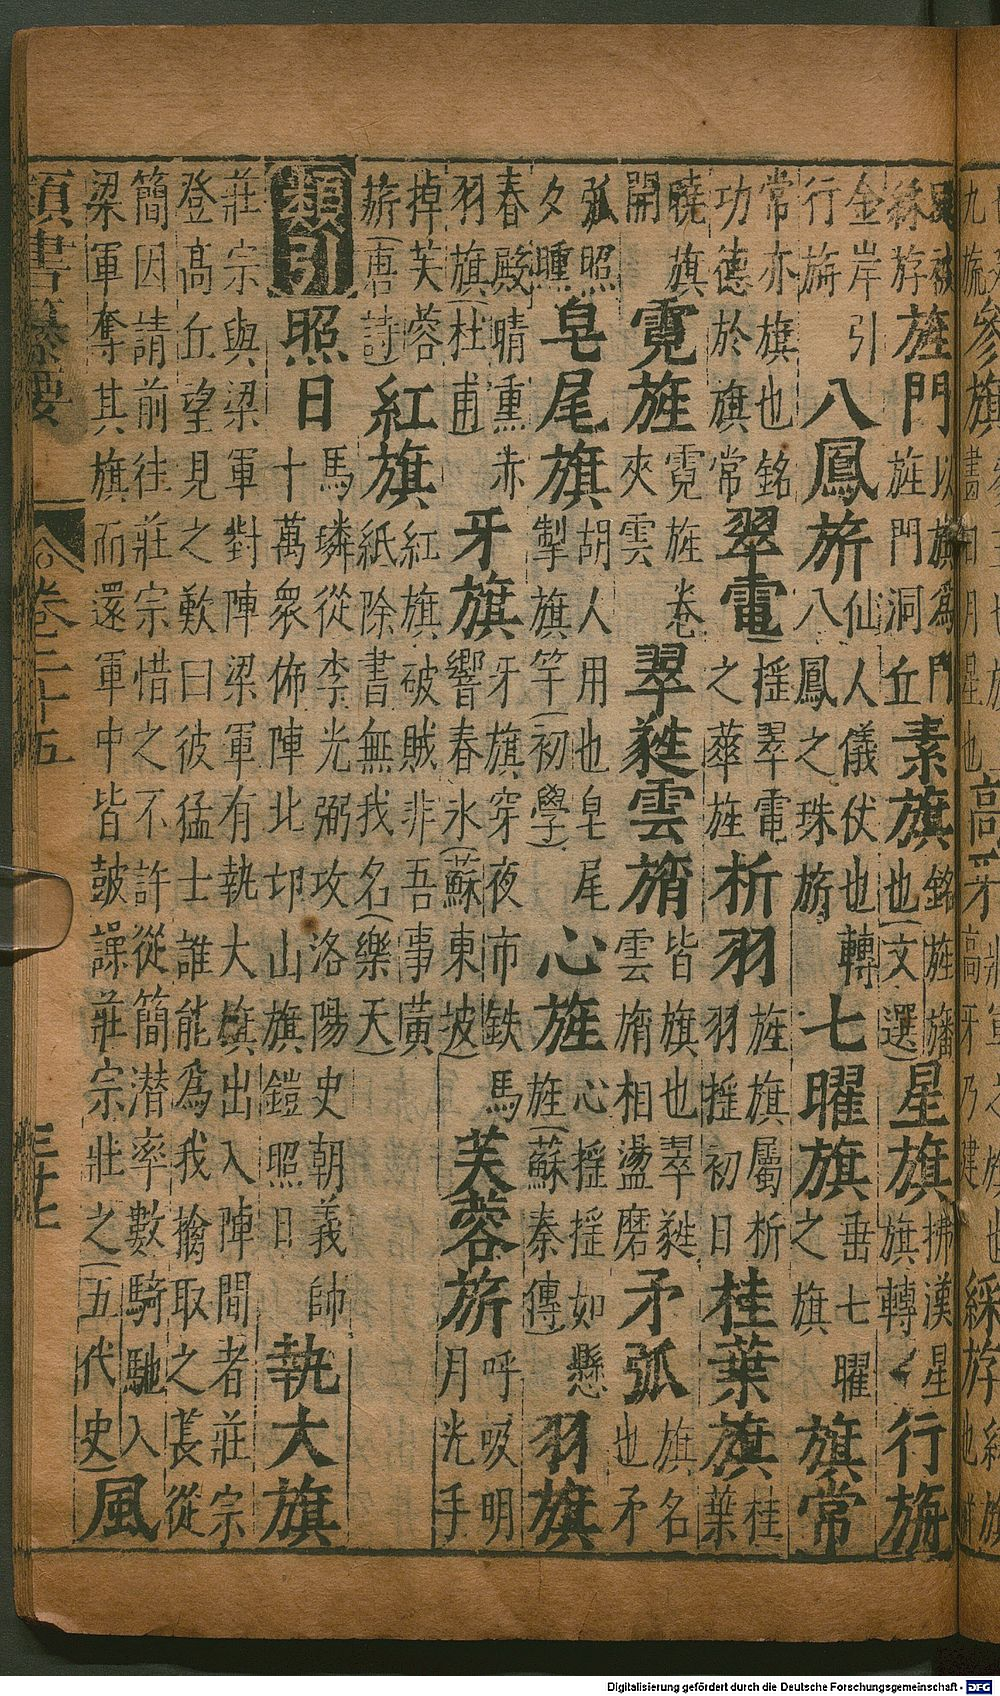 參旗
畫日月星也
高牙
高牙乃建
綵斿
綵斿
旌門
以旗為門
旌門洞丘
素旗
銘旌旛
也(文選)
星旗
拂漢星
旗轉
行旃
金岸引
行旃
八鳳旂
仙人儀仗也轉
八鳳之珠旂
七曜旗
垂七曜
之旗
旗常
常亦旗也銘
功德於旗常
翠電
揺翠電
之華旌
析羽
旌旗屬析
羽揺初日
桂葉旗
桂葉
曉旗
開
霓旌
霓旌卷
夾雲
翠蕤雲旓
皆旗也翠蕤
雲旓相盪磨
矛弧
旗名
也矛
弧照
夕曛
皂尾旗
胡人用也皂尾
掣旗竿(初學)
心旌
心揺揺如懸
旌(蘇秦傳)
羽旗
春殿晴熏赤
羽旗(杜甫
牙旗
牙旗穿夜市鉄馬
響春氷(蘇東坡)
芙蓉旂
呼吸明
月光手
掉芙蓉
旂(唐詩)
紅旗
紅旗破賊非吾事黃
紙除書無我名(樂天)
類引
照日
馬璘從李光弼攻洛陽史朝義帥
十萬衆佈陣北邙山旗鎧照日
執大旗
莊宗與梁軍對陣梁軍有執大旗出入陣間者莊宗
登高丘望見之歎曰彼猛士誰能為我擒取之萇從
簡因請前往莊宗惜之不許從簡潛率數騎馳入
梁軍奪其旗而還軍中皆鼓譟莊宗壯之(五代史)
風
類書纂要
卷三十五
三十七
Digitalisierung gefördert durch die Deutsche Forschungsgemeinschaft - DFG